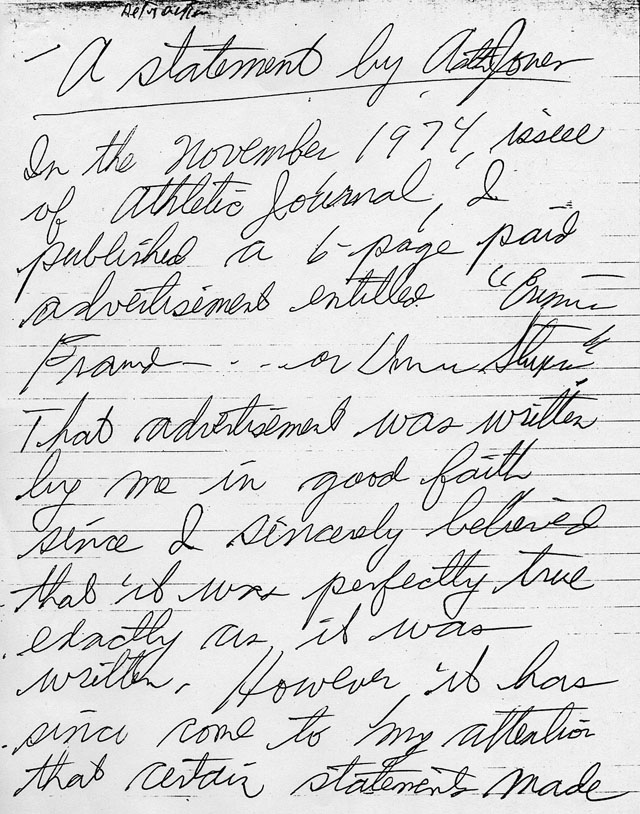 A statement by Arthur Jones
In the November 1974, issue
of Athletic Journal, I
published a 6-page paid
advertisement entitled "
Fraud - . . . or
That advertisement was written
by me in good faith,
since I sincerely believed
that it was perfectly true
exactly as it was
written. However, it has
since come to my attention
that certain statements made